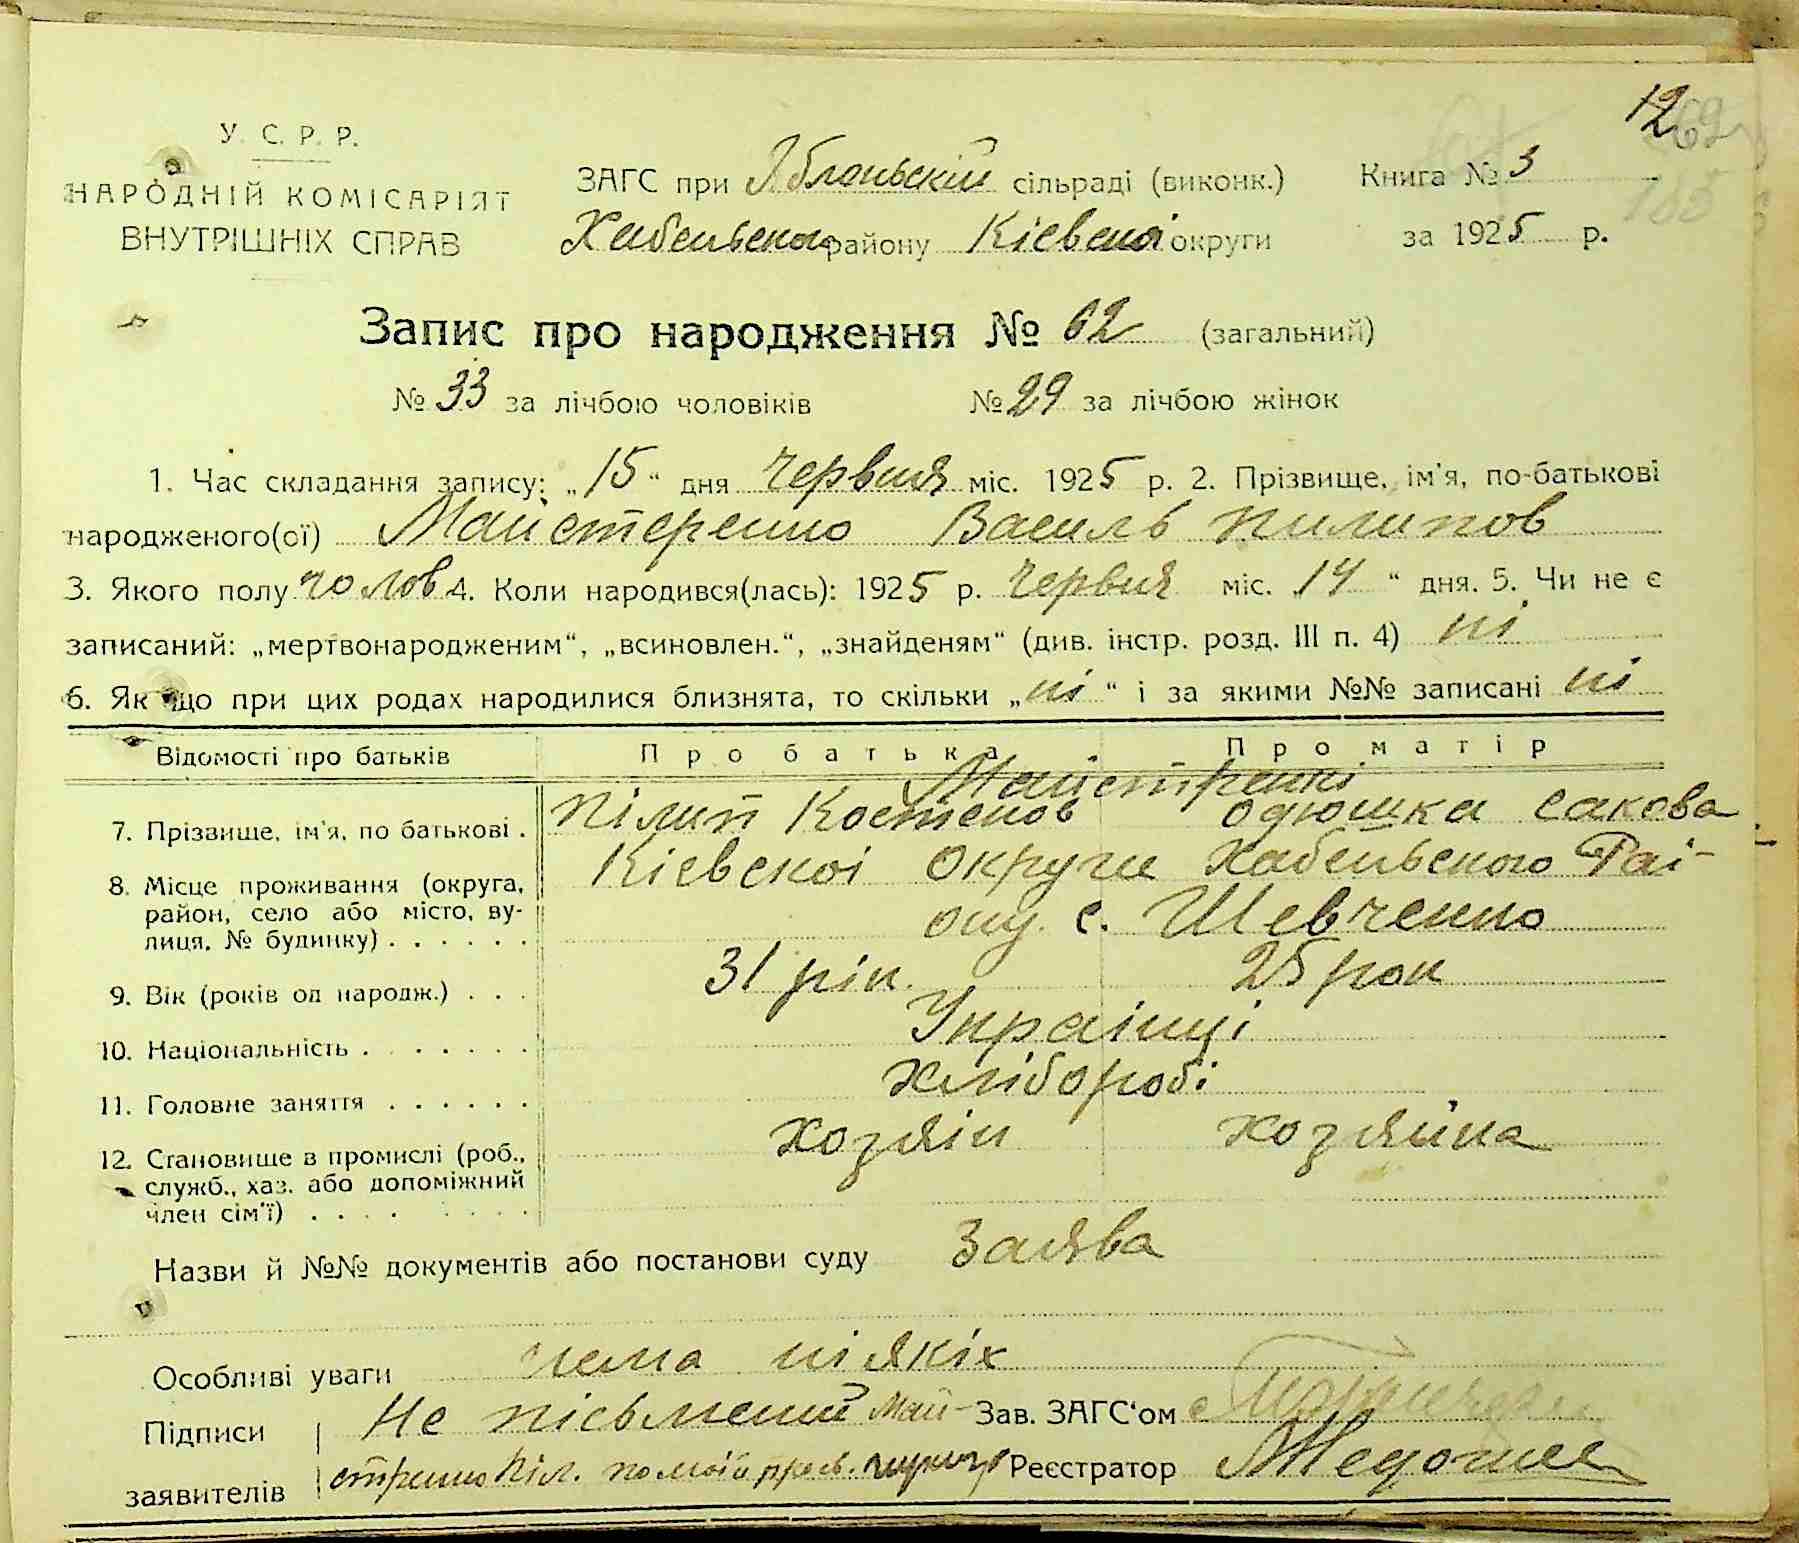 12
У. С. Р. Р.
НАРОДНІЙ КОМІСАРІЯТ
ВНУТРІШНІХ СПРАВ
ЗАГС при Яблоньскій сільраді (виконк.) Книга № 3
Хабенського району Кіевскоі округи за 1925 р.
Запис про народження № 62 (загальний)
№ 33 за лічбою чоловіків № 29 за лічбою жінок
1. Час складання запису: „15“ дня червня міс. 1925 р. 2. Прізвище, ім'я, по-батькові
народженого(ої) Майстеренко Василь Пилипов
3. Якого полу чолов 4. Коли народився(лась): 1925 р. червня міс. 14 “ дня. 5. Чи не є
записаний: „мертвонародженим“, „всиновлен.“, „знайденям“ (див. інстр. розд. III п. 4) ні
6. Як що при цих родах народилися близнята, то скільки „ні“ і за якими №№ записані ні
Відомості про батьків Про батька Про матір
Майстренкі
7. Прізвище, ім'я, по батькові . Піліп Костенов Одюшка Сакова
8. Місце проживання (округа, район, село або місто, вулиця, № будинку) . . . . . . Кіевскоі Округи Хабенського Раі-
ону. с. Шевченко
9. Вік (років од народж.) . . . 31 рік. 25 рок
10. Національність . . . . . . . Украінці
11. Головне заняття . . . . . . Хлібороби
12. Становище в промислі (роб., служб., хаз. або допоміжний член сім'ї) . . . . Хозяін Хозяйка
Назви й №№ документів або постанови суду Заява
Особливі уваги нема ніякіх
Підписи заявителів Не пісьмений Май- Зав. ЗАГС'ом
стренко Піл. по моій Реєстратор